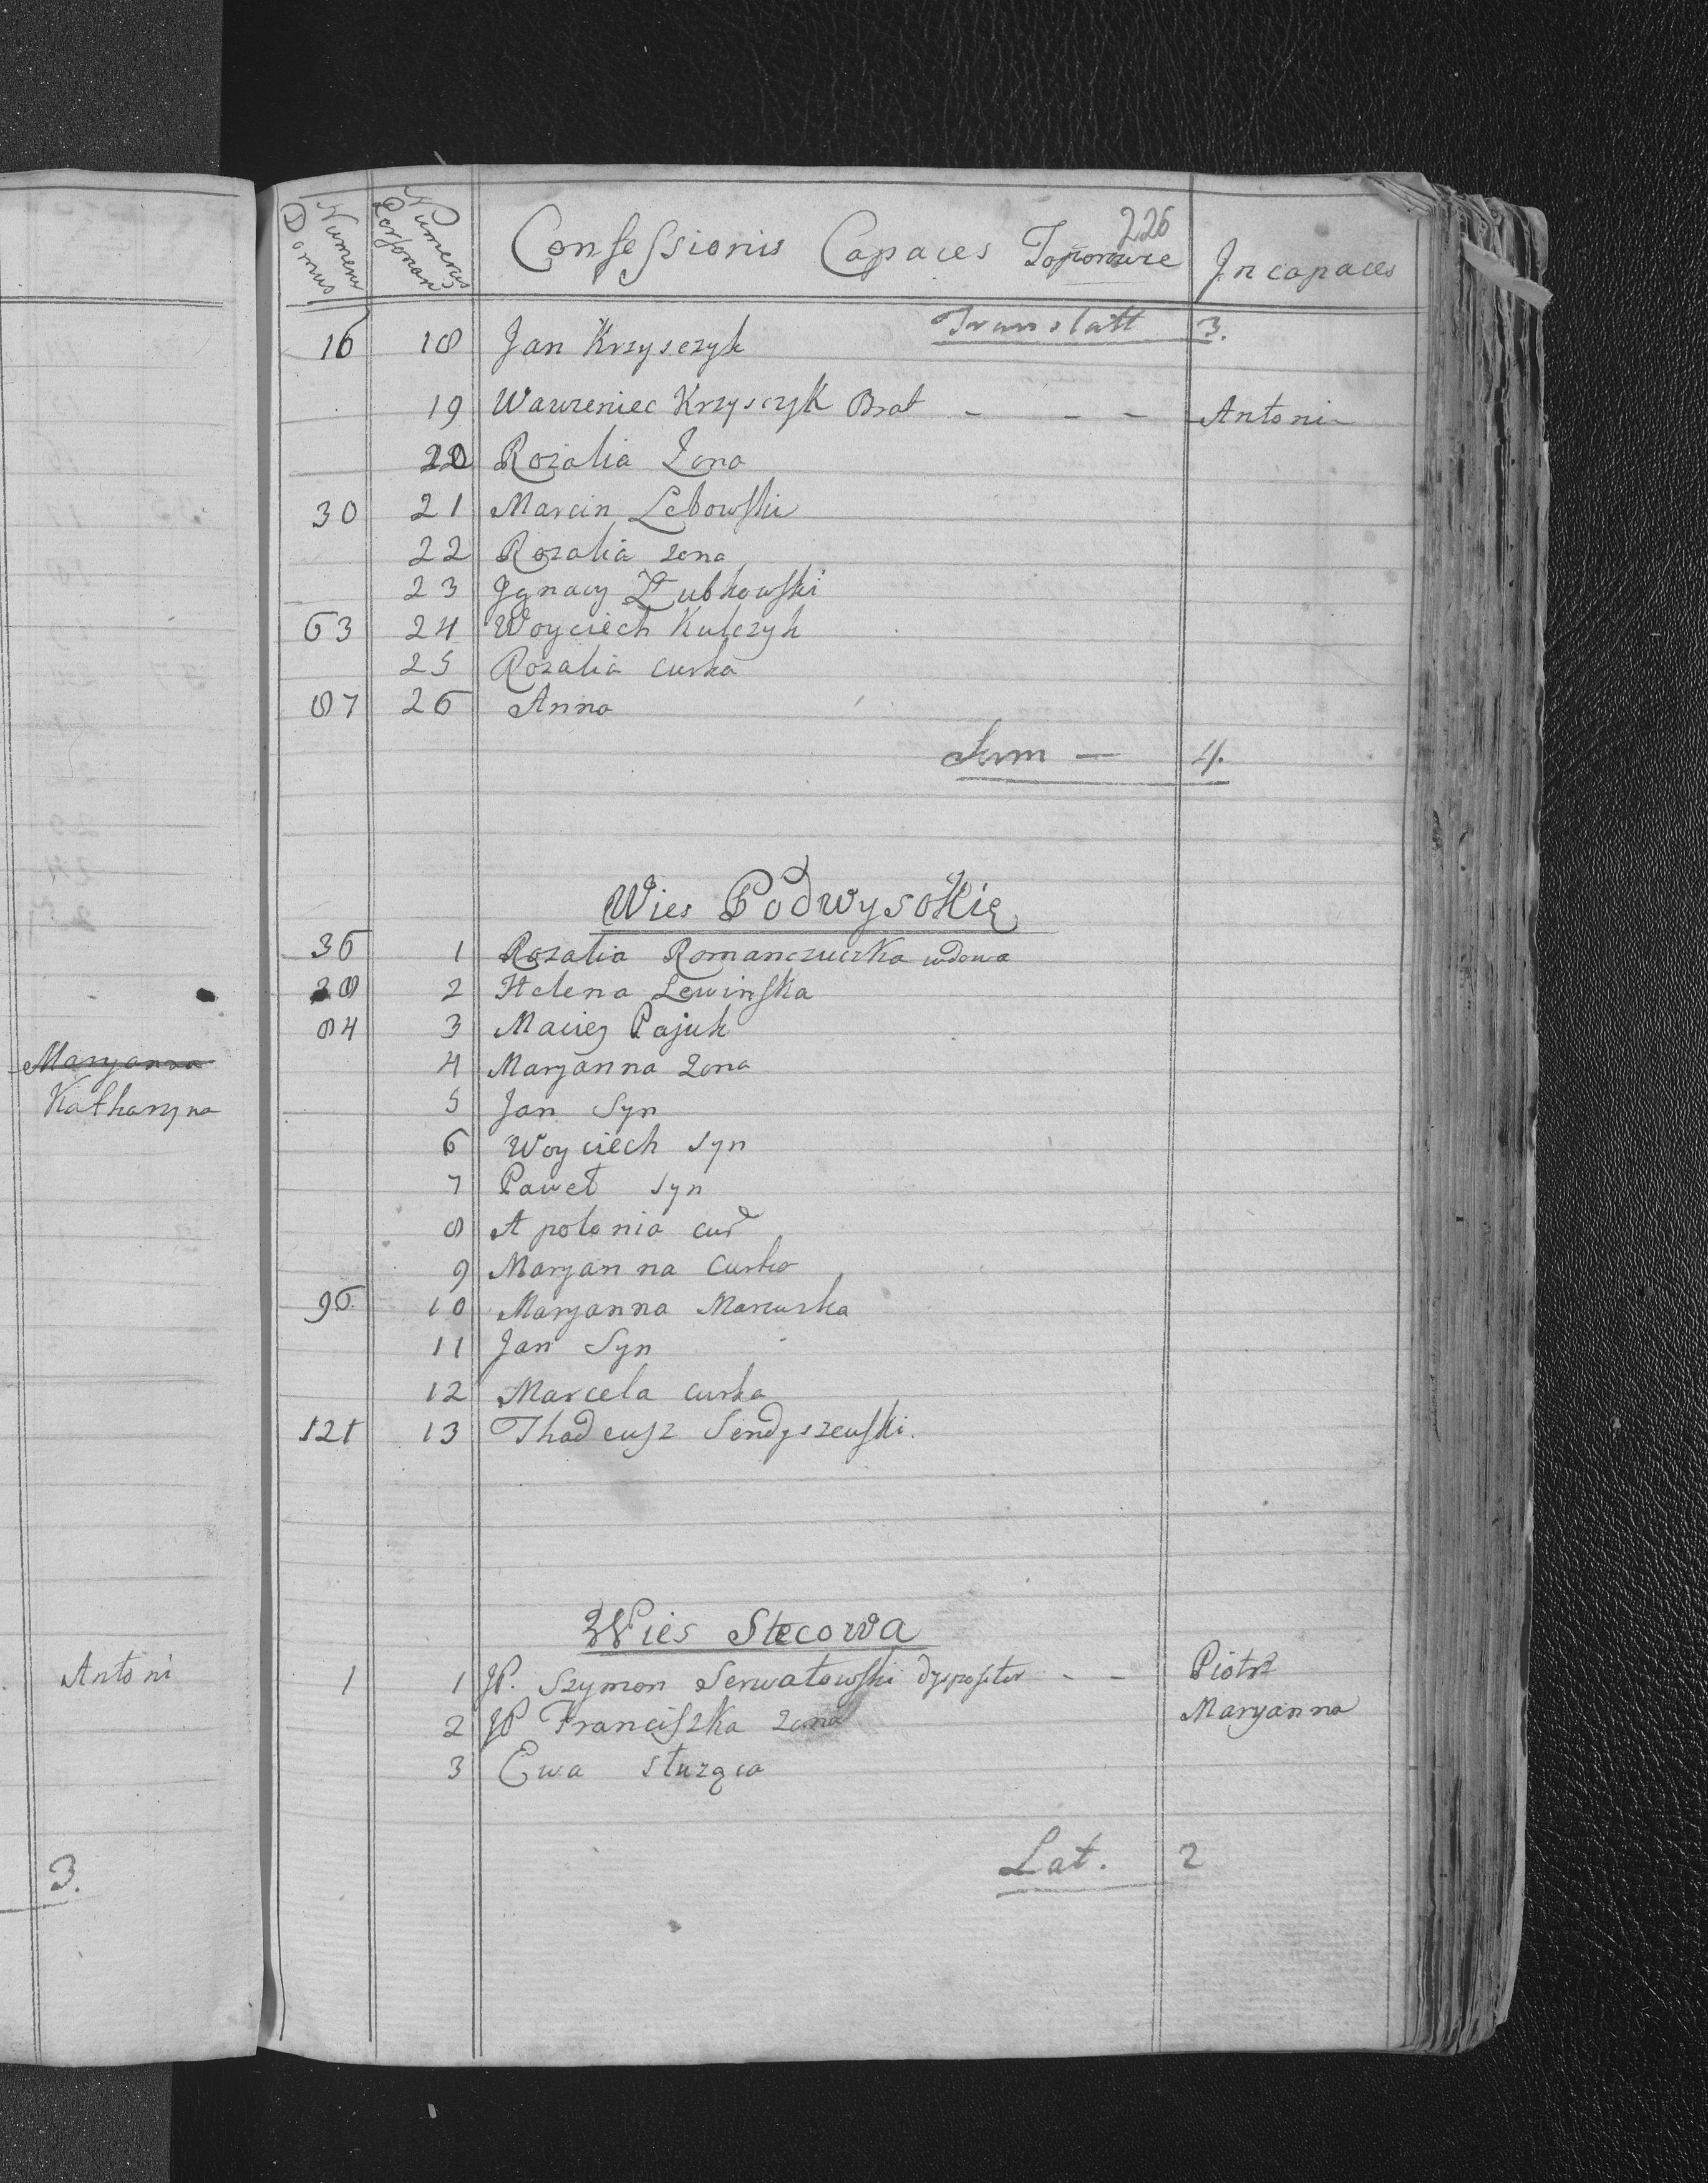 Maryanna
Katharyna
Antoni
3.
226
Numerus Domus
Numerus Personar
Confessionis Capaces Toporowce
Incapaces
Translatt 3.
16 18 Jan Krzysczyk
19 Wawreniec Krzysczyk Brat - - - Antoni
20 Rozalia Zona
30 21 Marcin Lebowski
22 Rozalia zona
23 Jgnacy Zubkowski
63 24 Woyciech Kulczyk
25 Rozalia curka
87 26 Anna
Sum — 4.
Wies Podwysokię
36 1 Rozalia Romanczuczka wdowa
2 Helena Lewinska
84 3 Maciej Pajuk
4 Maryanna Zona
5 Jan Syn
6 Woyciech Syn
7 Paweł Syn
8 Apolonia cur
9 Maryanna Curka
96 10 Maryanna
11 Jan Syn
12 Marcela curka
121 13 Thadeusz Sendyszewski.
Wies Stecowa
1 1 JP. Szymon Serwatowski dyspositor - - Piotr
2 JP Franciszka zona Maryanna
3 Ewa słuząca
Lat. 2